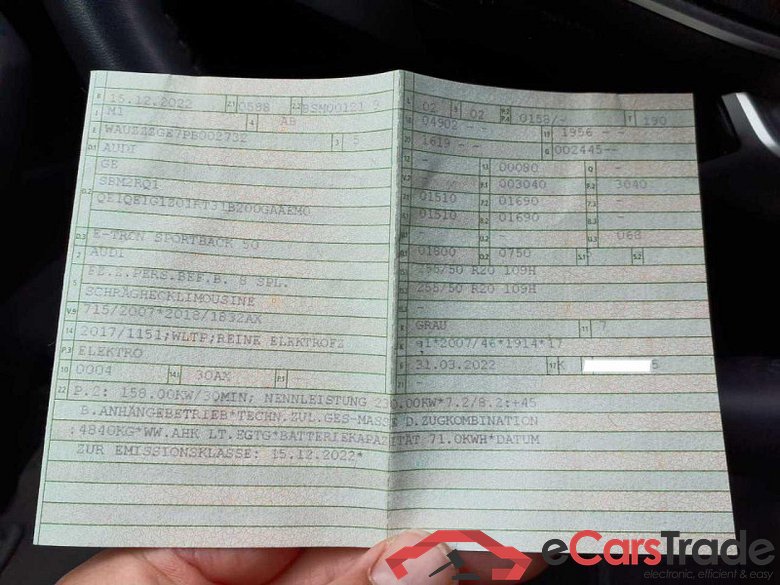 B 15.12.2022 2.1 0588 2.2 BSM00121 9
J M1 4 AB
E WAUZZZGE7PB002732 3 5
D.1 AUDI
GE
D.2 SBM2RQ1
QE1QE1G1Z01FT31B200GAAEM0
D.3 E-TRON SPORTBACK 50
2 AUDI
5 FZ.Z.PERS.BEF.B. 8 SPL.
SCHRÄGHECKLIMOUSINE
V.9 715/2007*2018/1832AX
14 2017/1151;WLTP;REINE ELEKTROFZ
P.3 ELEKTRO
10 0004 14.1 30AX P.5
22 P.2: 158.00KW/30MIN; NENNLEISTUNG 230.00KW*7.2/8.2:+45
B.ANHÄNGEBETRIEB*TECHN.ZUL.GES-MASSE D.ZUGKOMBINATION
:4840KG*WW.AHK LT.EGTG*BATTERIEKAPAZITÄT 71.0KWH*DATUM
ZUR EMISSIONSKLASSE: 15.12.2022*
L 02 9 02 P.2 P.4 0158/- T 190
18 04902 - - 19 1956 - -
20 1619 - - G 002445--
12 - 13 00080 Q -
V.7 - F.1 003040 F.2 3040
7.1 01510 7.2 01690 7.3 -
8.1 01510 8.2 01690 8.3 -
U.1 - U.2 - U.3 068
O.1 01800 O.2 0750 S.1 S.2
15.1 255/50 R20 109H
15.2 255/50 R20 109H
15.3 -
R GRAU 11 7
K e1*2007/46*1914*17
6 31.03.2022 17 K 5
21 -
eCarsTrade
electronic, efficient & easy